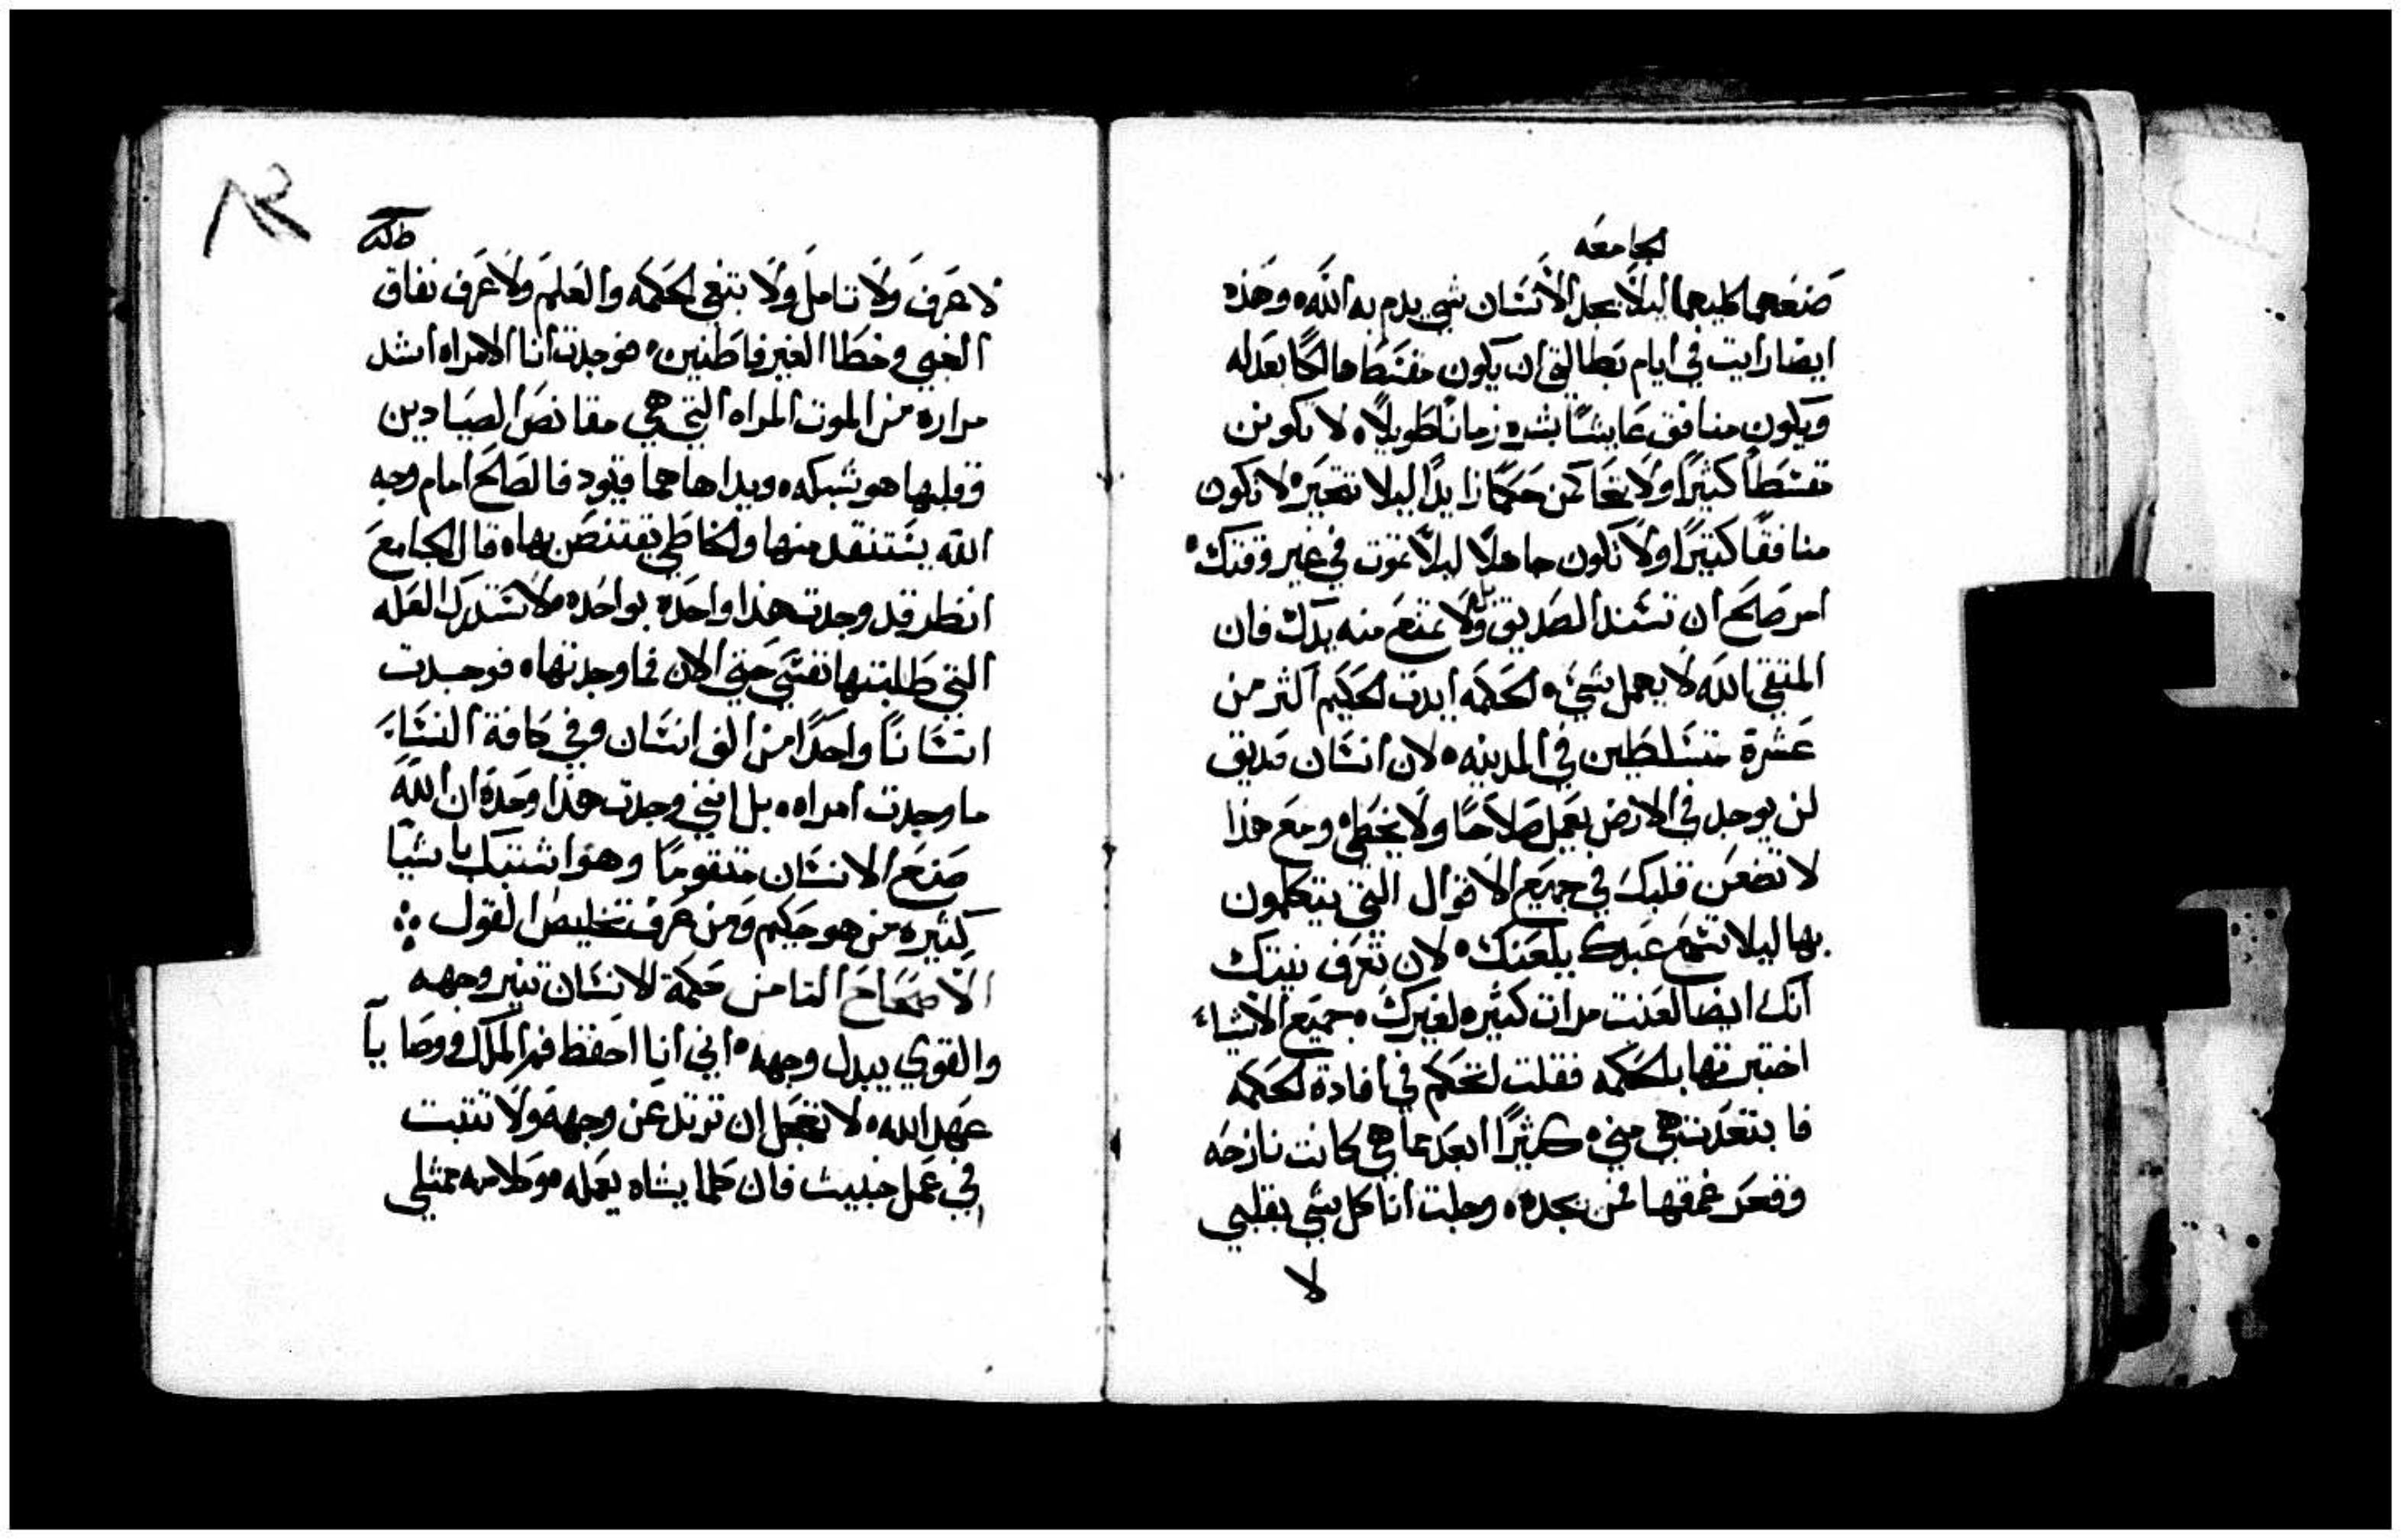 الجامعه
صنعهما كليهما ليلا يجد الانسان شي يدم به الله وهذه
ايضا رايت في ايام بطالتي ان يكون مقسطا هالكا بعدله
ويكون منافق عايشا بشره زمانا طويلا لا تكونن
مقسطا كثيرا ولا تحاكمن حكما زايدا ليلا تتحير لا تكون
منافقا كثيرا ولا تكون جاهلا ليلا تموت في غير وقتك
امر صالح ان تسند الصديق بل ولا تمنع منه يدك فان
المتقي الله لا يهمل شي والحكمه ايدت الحكيم اكثر من
عشرة متسلطين في المدينه لان انسان صديق
لن يوجد في الارض يعمل صلاحا ولا يخطي ومع هذا
لا تضعن قلبك في جميع الاقوال التي يتكلمون
بها ليلا تسمع عبدك يلعنك لان تعرف نيتك
انك ايضا لعنت مرات كثيره لغيرك جميع الاشياء
اختبرتها بالحكمه فقلت لتحكم في افادة الحكمه
فابتعدت هي مني كثيرا ابعد مما هي كانت نازحه
وقعر عمقها فمن يجده وجلت انا كل شي بقلبي
لا
لاعرف ولا تامل ولابتغي الحكمه والعلم ولاعرف نفاق
الغبي وخطا الغير فاطنين فوجدت انا الامراه اشد
مراره من الموت المراه التي هي مقانص الصيادين
وقلبها هو شبكه ويداها هما قيود فالصالح امام وجه
الله يستنقد منها والخاطي يقتنص بها قال الجامع
انظر قد وجدت هذا واحده بواحده لاستدرك العله
التي طلبتها نفسي حتي الان فما وجدتها فوجدت
انسانا واحدا من الف انسان وفي كافة النساء
ما وجدت امراه بل انني وجدت هذا وحده ان الله
صنع الانسان متقوما وهو اشتبك باشيا
كثيره من هو حكيم ومن عرف تخليص القول
الاصحاح الثامن حكمة الانسان تنير وجهه
والقوي يبدل وجهه اني انا احفظ فم الملك ووصايا
عهد الله لا تعجل ان ترتد عن وجهه ولا تثبت
في عمل خبيث فان كلما يشاه يعمله وكلامه ممتلي